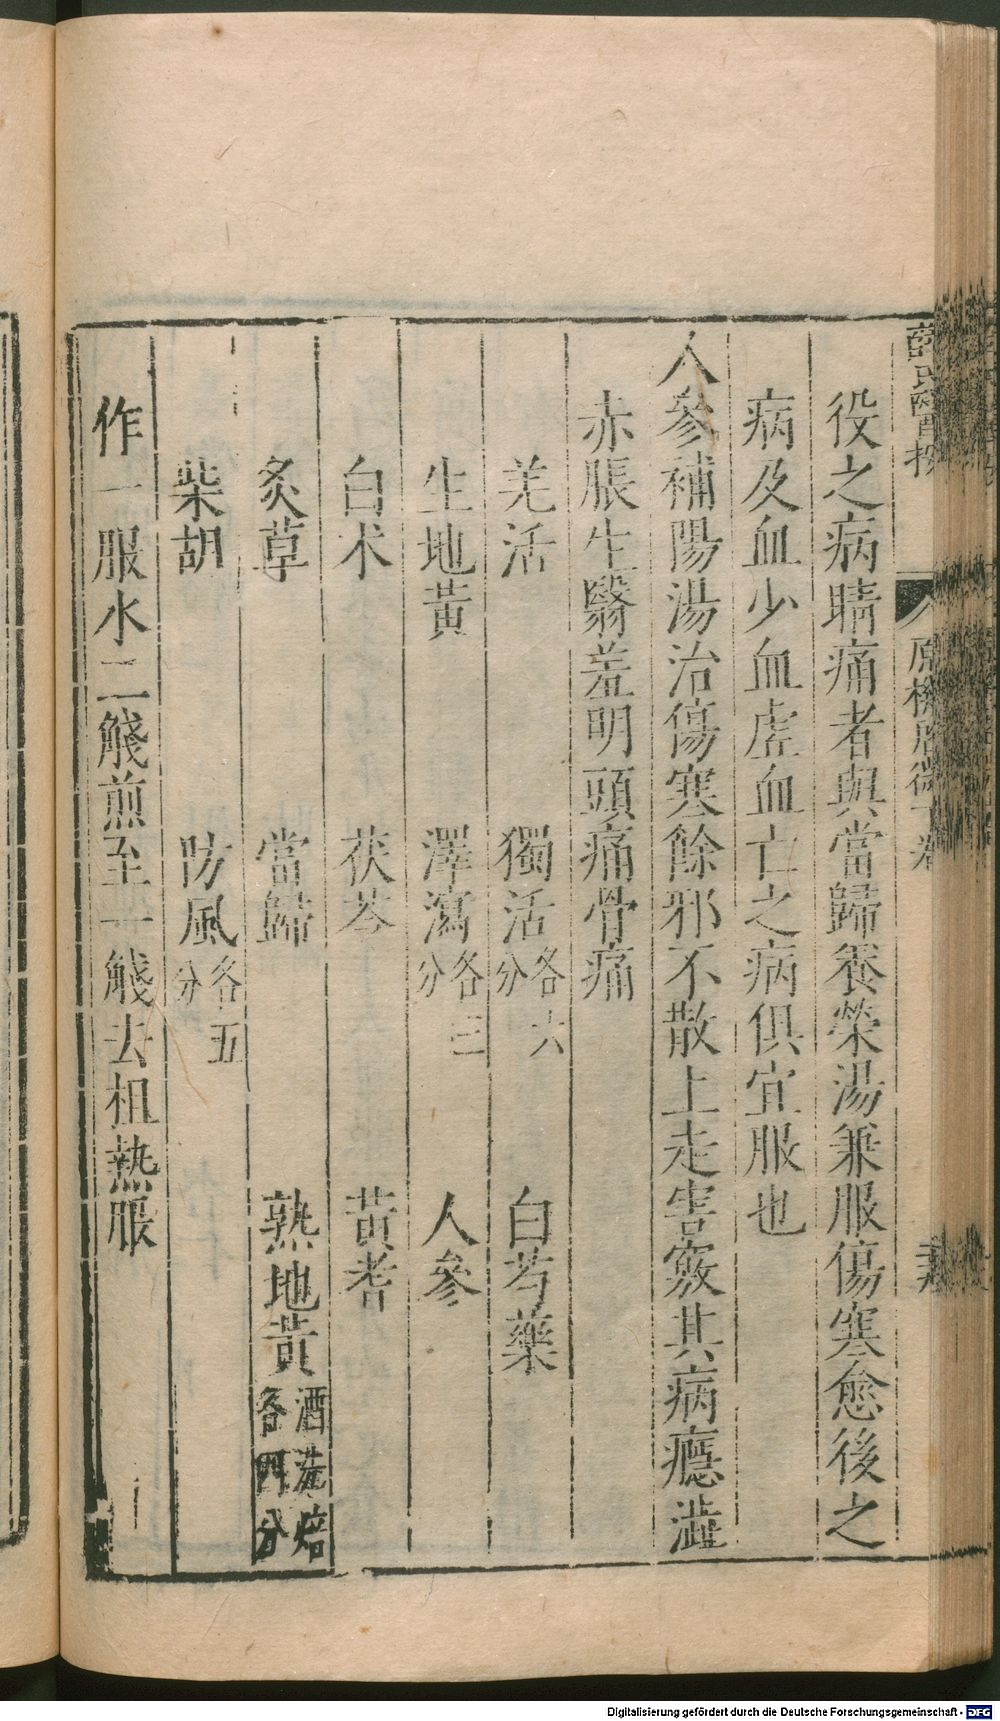 薛氏醫按 原機啓微下卷
役之病睛痛者與當歸養榮湯兼服傷寒愈後之
病及血少血虛血亡之病俱宜服也
人參補陽湯治傷寒餘邪不散上走害竅其病癮澁
赤脹生翳羞明頭痛骨痛
羌活 獨活各六分 白芍藥
生地黃 澤瀉各三分 人參
白朮 茯苓 黃耆
炙草 當歸 熟地黃酒洗焙各四分
柴胡 防風各五分
作一服水二觥煎至一觥去柤熱服
Digitalisierung gefördert durch die Deutsche Forschungsgemeinschaft - DFG